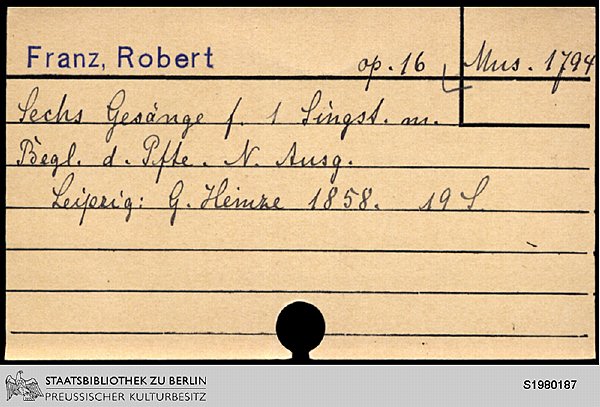 Franz, Robert op. 16 Mus. 1794
Sechs Gesänge f. 1 Singst. m.
Begl. d. Pfte. N. Ausg.
Leipzig: G. Heinze 1858. 19 S.
STAATSBIBLIOTHEK ZU BERLIN
PREUSSISCHER KULTURBESITZ
S1980187